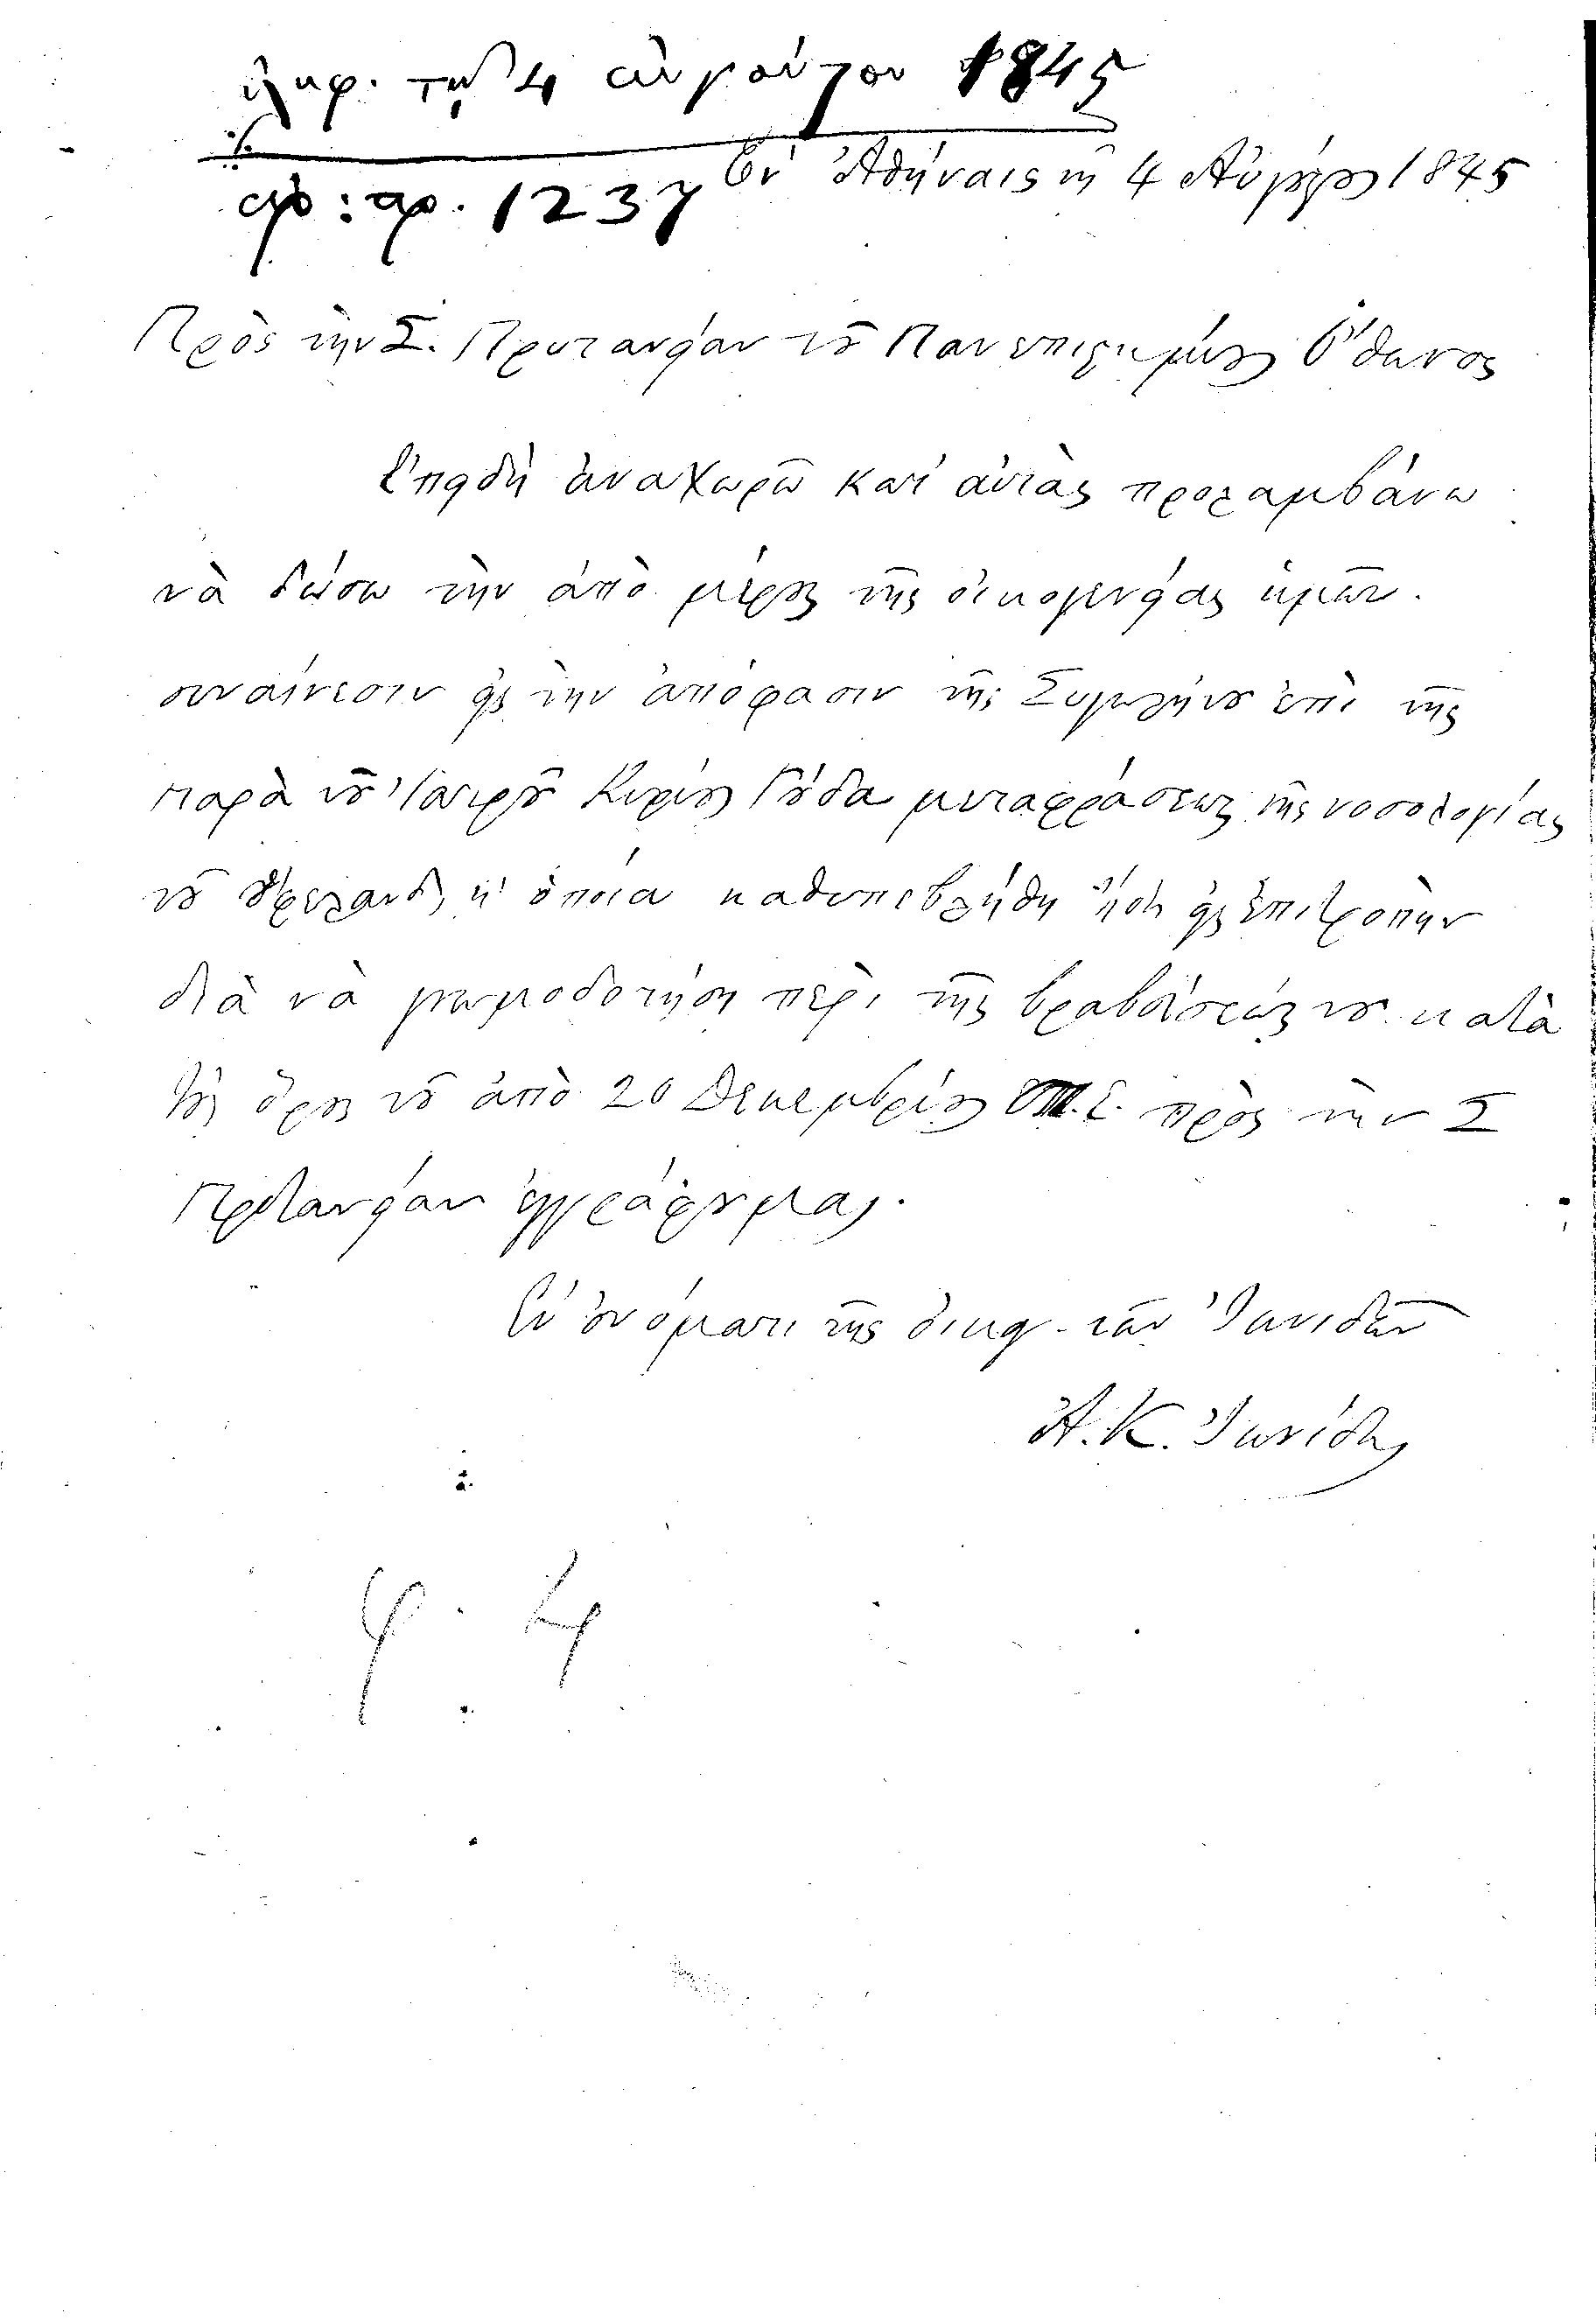 ἐλήφ. τῇ 4 αὐγούστου 1845
ἀρ: πρ. 1237
Ἐν Ἀθήναις τῇ 4 Αὐγούστου 1845
Πρὸς τὴν Σ. Πρυτανείαν τοῦ Πανεπιστημίου Ὄθωνος
Ἐπειδὴ ἀναχωρῶ κατ' αὐτὰς προλαμβάνω
νὰ δώσω τὴν ἀπὸ μέρους τῆς οἰκογενείας ἡμῶν
συναίνεσιν εἰς τὴν ἀπόφασιν τῆς Συγκλήτου ἐπὶ τῆς
παρὰ τοῦ Ἰατροῦ Κυρίου Γούδα μεταφράσεως τῆς νοσολογίας
τοῦ ἡ ὁποία καθυπεβλήθη ἤδη εἰς ἐπιτροπὴν
διὰ νὰ γνωμοδοτήσῃ περὶ τῆς βραβεύσεώς του κατὰ
τοὺς ὅρους τοῦ ἀπὸ 20 Δεκεμβρίου Ε.Ε. πρὸς τὴν Σ
Πρυτανείαν ἐγγράφου μας.
Ἐν ὀνόματι τῆς οἰκογ. τῶν Ἰωνιδῶν
Ἀ. Κ. Ἰωνίδης
φ. 4